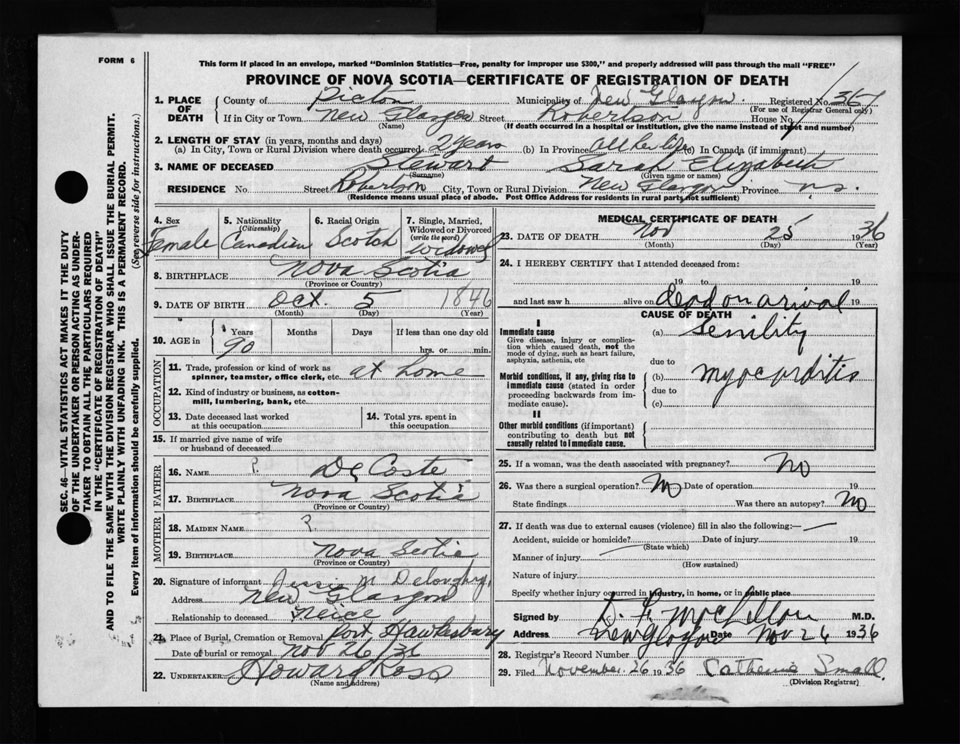 FORM 6
This form if placed in an envelope, marked "Dominion Statistics—Free, penalty for improper use $300," and properly addressed will pass through the mail "FREE"
PROVINCE OF NOVA SCOTIA—CERTIFICATE OF REGISTRATION OF DEATH
SEC. 46—VITAL STATISTICS ACT MAKES IT THE DUTY
OF THE UNDERTAKER OR PERSON ACTING AS UNDER-
TAKER TO OBTAIN ALL THE PARTICULARS REQUIRED
IN THE "CERTIFICATE OF REGISTRATION OF DEATH"
AND TO FILE THE SAME WITH THE DIVISION REGISTRAR WHO SHALL ISSUE THE BURIAL PERMIT.
WRITE PLAINLY WITH UNFADING INK. THIS IS A PERMANENT RECORD.
Every item of information should be carefully supplied. (See reverse side for instructions.)
1. PLACE OF DEATH
County of Pictou Municipality of New Glasgow Registered No. 367
(For use of Registrar General only)
If in City or Town New Glasgow Street Robertson House No.
(Name) (If death occurred in a hospital or institution, give the name instead of street and number)
2. LENGTH OF STAY (in years, months and days)
(a) In City, Town or Rural Division where death occurred 2 years (b) In Province all her life (c) In Canada (if immigrant)
3. NAME OF DECEASED Stewart Sarah Elizabeth
(Surname) (Given name or names)
RESIDENCE No. Street Robertson City, Town or Rural Division New Glasgow Province N.S.
(Residence means usual place of abode. Post Office Address for residents in rural parts not sufficient)
4. Sex Female
5. Nationality (Citizenship) Canadian
6. Racial Origin Scotch
7. Single, Married, Widowed or Divorced (write the word) Widowed
8. BIRTHPLACE Nova Scotia
(Province or Country)
9. DATE OF BIRTH Oct. 5 1846
(Month) (Day) (Year)
10. AGE in Years 90 Months Days If less than one day old
hrs. or min.
OCCUPATION
11. Trade, profession or kind of work as spinner, teamster, office clerk, etc. at home
12. Kind of industry or business, as cotton-mill, lumbering, bank, etc.
13. Date deceased last worked at this occupation
14. Total yrs. spent in this occupation
15. If married give name of wife or husband of deceased
FATHER
16. NAME ? De Coste
17. BIRTHPLACE Nova Scotia
(Province or Country)
MOTHER
18. MAIDEN NAME ?
19. BIRTHPLACE Nova Scotia
(Province or Country)
20. Signature of informant Jessie M
Address New Glasgow
Relationship to deceased Neice
21. Place of Burial, Cremation or Removal Port Hawkesbury
Date of burial or removal Nov 26/36
22. UNDERTAKER Howard Ross
(Name and address)
MEDICAL CERTIFICATE OF DEATH
23. DATE OF DEATH Nov 25 1936
(Month) (Day) (Year)
24. I HEREBY CERTIFY that I attended deceased from:
19 to 19
and last saw h alive on dead on arival 19
CAUSE OF DEATH
I
Immediate cause
Give disease, injury or complica-
tion which caused death, not the
mode of dying, such as heart failure,
asphyxia, asthenia, etc
(a) Senility
due to
Morbid conditions, if any, giving rise to
immediate cause (stated in order
proceeding backwards from im-
mediate cause).
(b) myocarditis
due to
(c)
II
Other morbid conditions (if important)
contributing to death but not
causally related to immediate cause.
25. If a woman, was the death associated with pregnancy? No
26. Was there a surgical operation? No Date of operation 19
State findings Was there an autopsy? No
27. If death was due to external causes (violence) fill in also the following:—
Accident, suicide or homicide? Date of injury 19
(State which)
Manner of injury
(How sustained)
Nature of injury
Specify whether injury occurred in industry, in home, or in public place
Signed by M.D.
Address New Glasgow Date Nov 26 1936
28. Registrar's Record Number
29. Filed November 26 1936 Catherine Small
(Division Registrar)